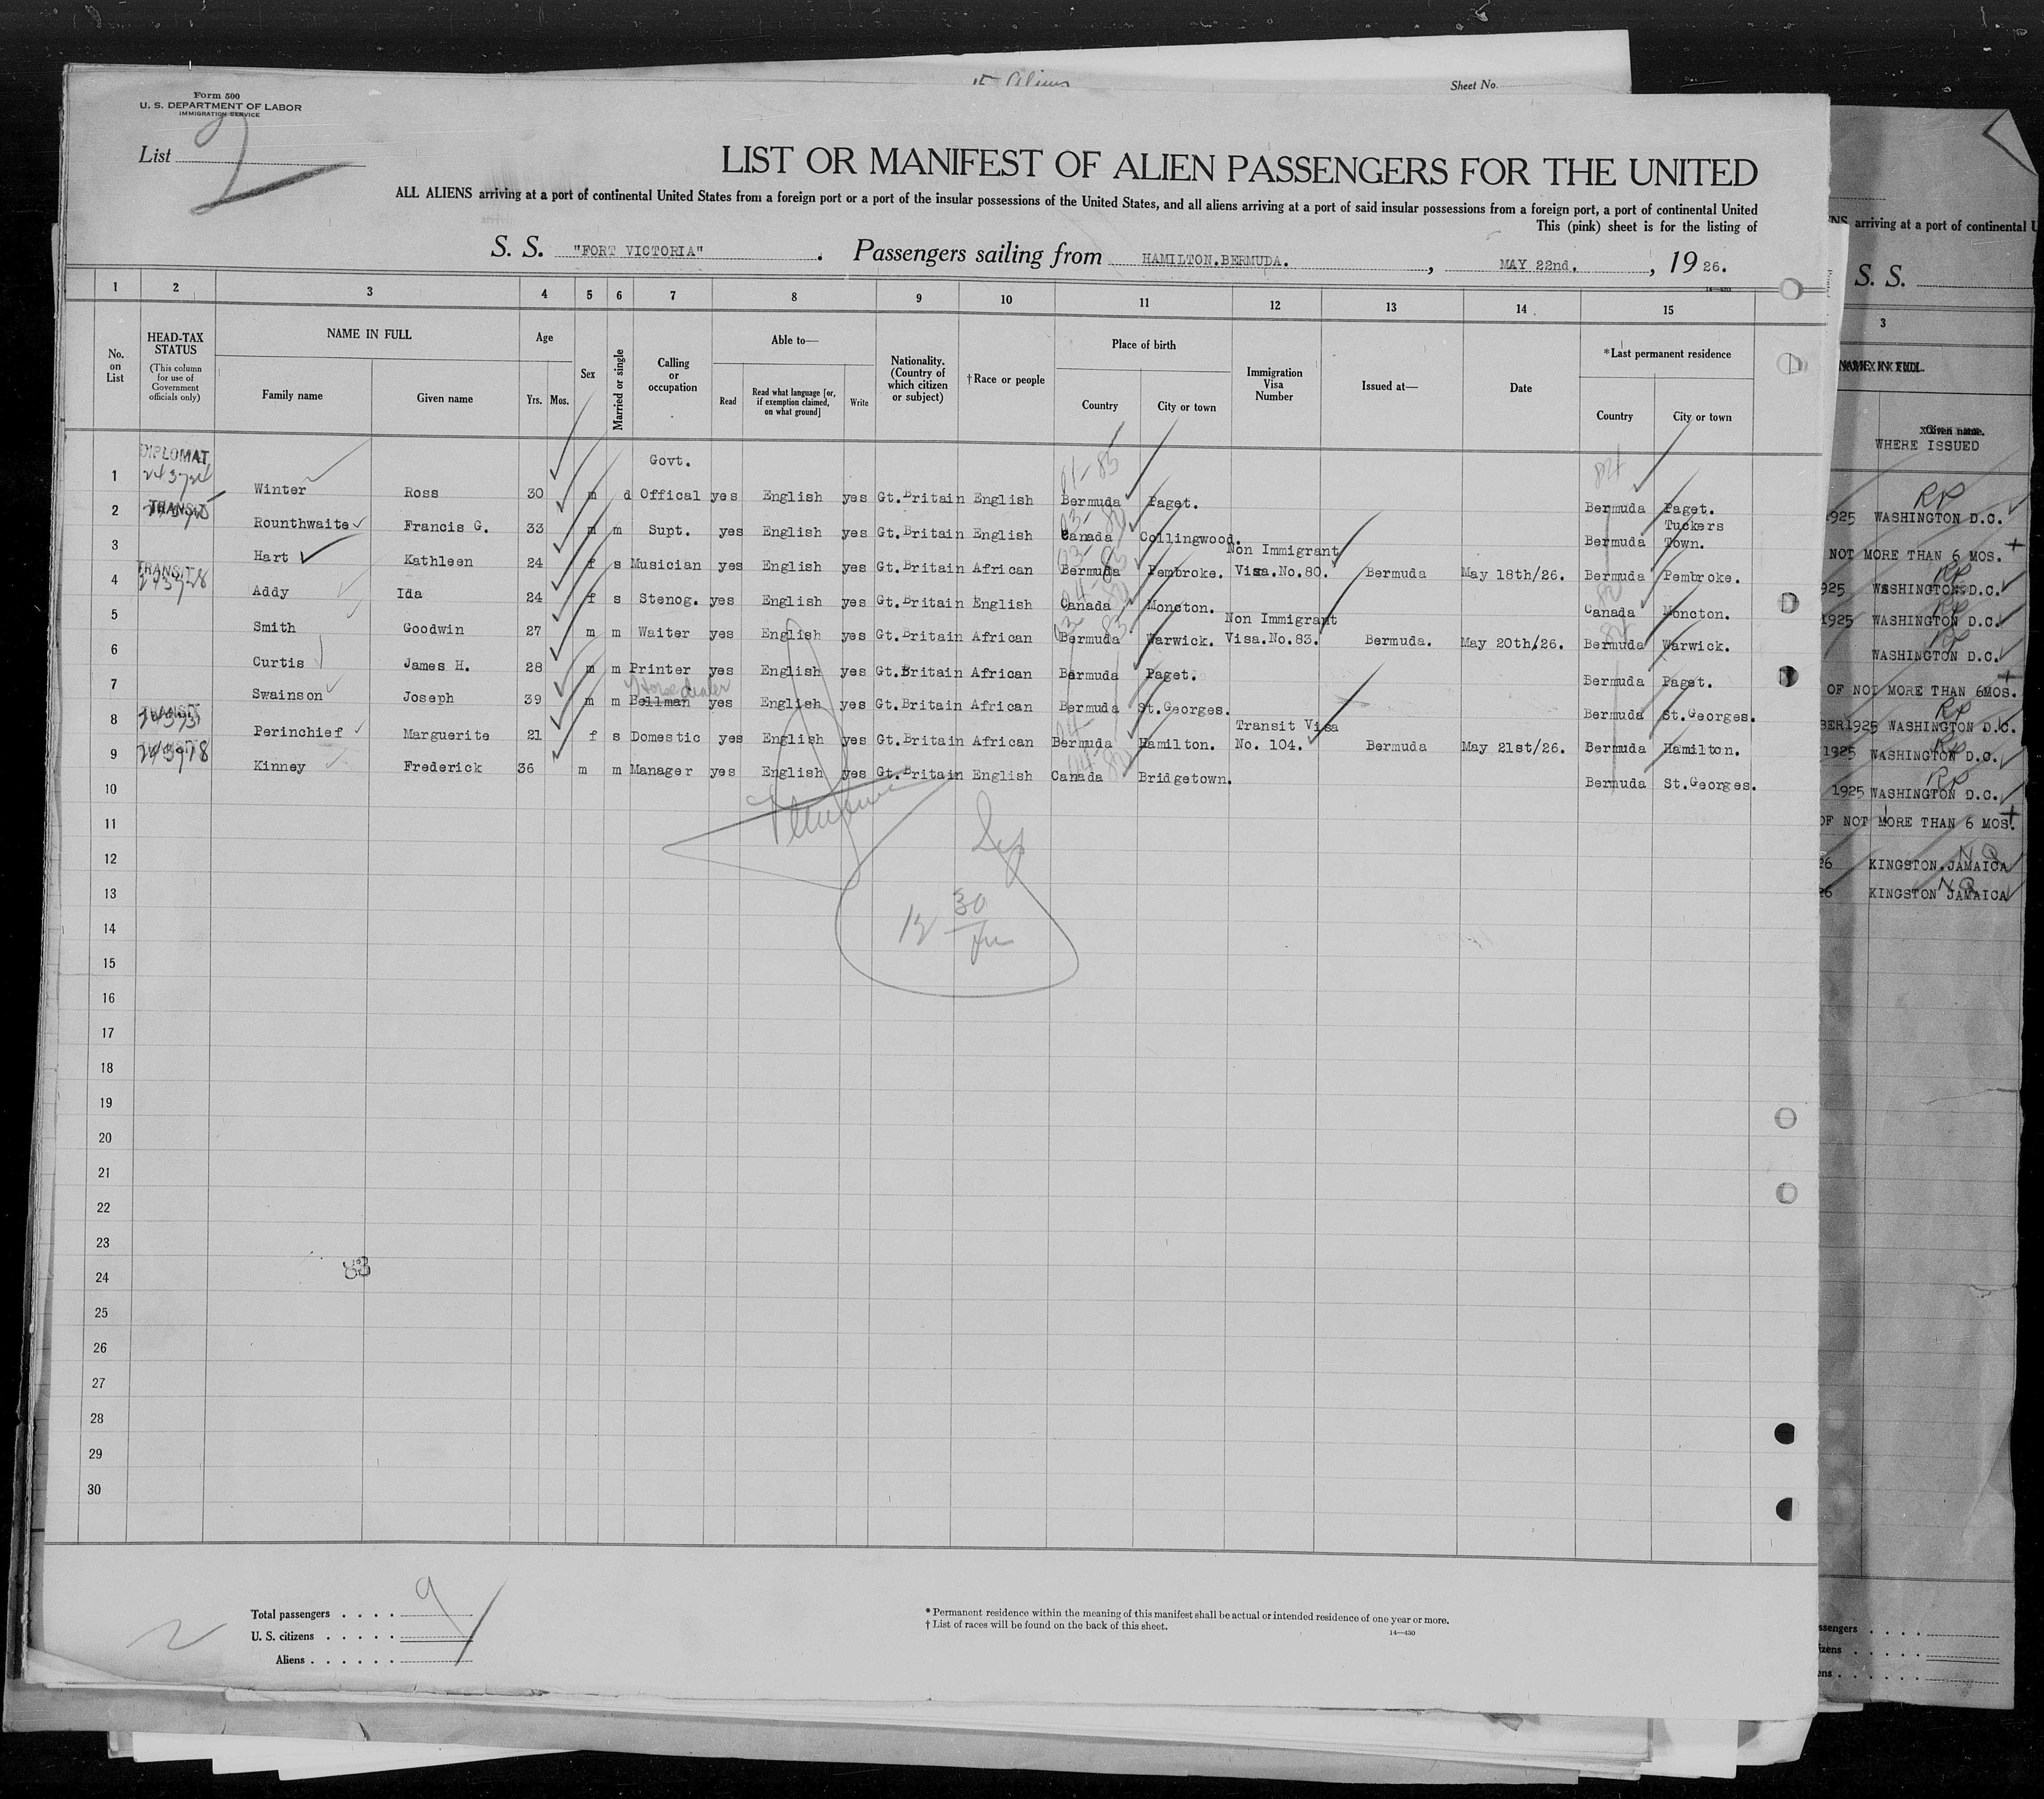 Aliens
Sheet No.
Form 500
U. S. DEPARTMENT OF LABOR
IMMIGRATION SERVICE
List 2
LIST OR MANIFEST OF ALIEN PASSENGERS FOR THE UNITED
ALL ALIENS arriving at a port of continental United States from a foreign port or a port of the insular possessions of the United States, and all aliens arriving at a port of said insular possessions from a foreign port, a port of continental United
This (pink) sheet is for the listing of
S. S. "FORT VICTORIA" . Passengers sailing from HAMILTON.BERMUDA. , MAY 22nd. , 19 26.
14—430
1 2 3 4 5 6 7 8 9 10 11 12 13 14 15
No. on List
HEAD-TAX STATUS
(This column for use of Government officials only)
NAME IN FULL
Family name Given name
Age
Yrs. Mos.
Sex
Married or single
Calling or occupation
Able to—
Read Read what language [or, if exemption claimed, on what ground] Write
Nationality. (Country of which citizen or subject)
†Race or people
Place of birth
Country City or town
Immigration Visa Number
Issued at—
Date
*Last permanent residence
Country City or town
1 DIPLOMAT Winter Ross 30 m d Govt. Offical yes English yes Gt.Britain English Bermuda Paget. Bermuda Paget.
2 TRANSIT Rounthwaite Francis G. 33 m m Supt. yes English yes Gt.Britain English Canada Collingwood. Bermuda Tuckers Town.
3 Hart Kathleen 24 f s Musician yes English yes Gt.Britain African Bermuda Pembroke. Non Immigrant Visa.No.80. Bermuda May 18th/26. Bermuda Pembroke.
4 TRANSIT 243928 Addy Ida 24 f s Stenog. yes English yes Gt.Britain English Canada Moncton. Canada Moncton.
5 Smith Goodwin 27 m m Waiter yes English yes Gt.Britain African Bermuda Warwick. Non Immigrant Visa.No.83. Bermuda. May 20th/26. Bermuda Warwick.
6 Curtis James H. 28 m m Printer yes English yes Gt.Britain African Bermuda Paget. Bermuda Paget.
7 Swainson Joseph 39 m m Bellman Horse dealer yes English yes Gt.Britain African Bermuda St.Georges. Bermuda St.Georges.
8 TRANSIT Perinchief Marguerite 21 f s Domestic yes English yes Gt.Britain African Bermuda Hamilton. Transit Visa No. 104. Bermuda May 21st/26. Bermuda Hamilton.
9 Kinney Frederick 36 m m Manager yes English yes Gt.Britain English Canada Bridgetown. Bermuda St.Georges.
10
11
12
13
14
15
16
17
18
19
20
21
22
23
24
25
26
27
28
29
30
30
83
Total passengers . . . . 9
U. S. citizens . . . . .
Aliens . . . . . .
2
* Permanent residence within the meaning of this manifest shall be actual or intended residence of one year or more.
† List of races will be found on the back of this sheet.
14—430
arriving at a port of continental U
S. S.
3
NAME IN FULL
Given name.
WHERE ISSUED
1925 WASHINGTON D.C.
NOT MORE THAN 6 MOS.
925 WASHINGTON D.C.
1925 WASHINGTON D.C.
WASHINGTON D.C.
OF NOT MORE THAN 6MOS.
BER1925 WASHINGTON D.C.
1925 WASHINGTON D.C.
1925 WASHINGTON D.C.
OF NOT MORE THAN 6 MOS.
26 KINGSTON.JAMAICA
26 KINGSTON JAMAICA
ssengers . . . .
izens . . . . .
ens . . . . . .